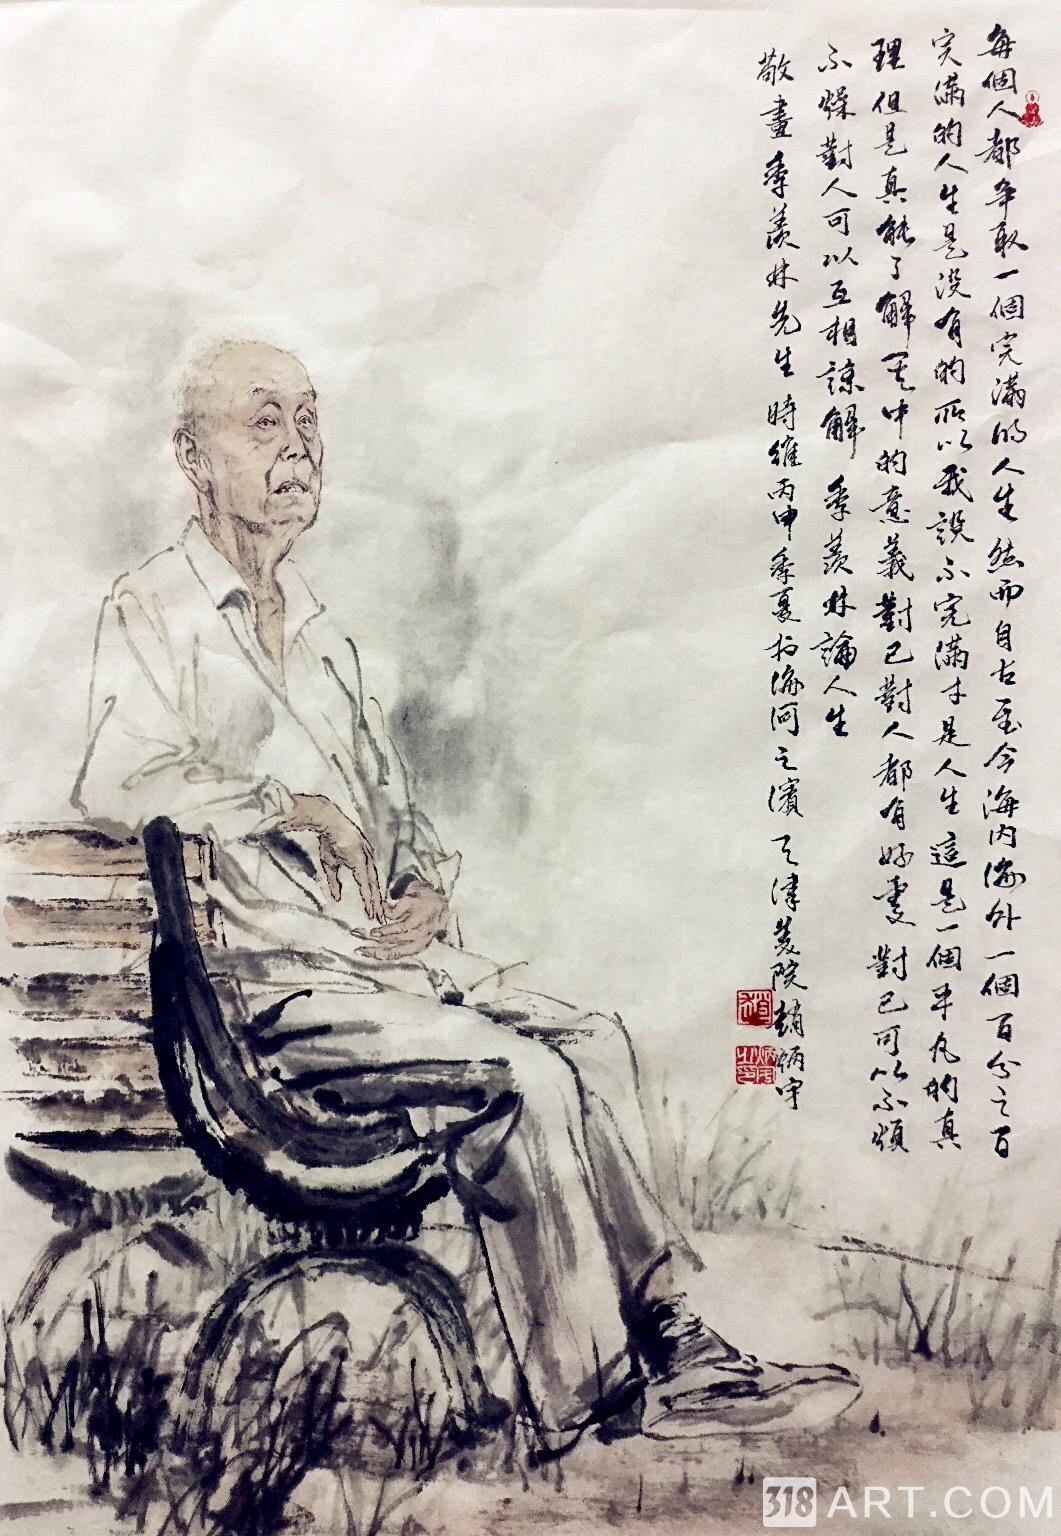 每個人都爭取一個完滿的人生然而自古至今海内海外一個百分之百
完滿的人生是没有的所以我說不完滿才是人生這是一個平凡的真
理但是真能了解其中的意義對己對人都有好處對己可以不煩
不燥對人可以互相諒解季羨林論人生
敬畫季羨林先生時維丙申季夏於海河之濱天津美院趙炳宇
318 ART.COM